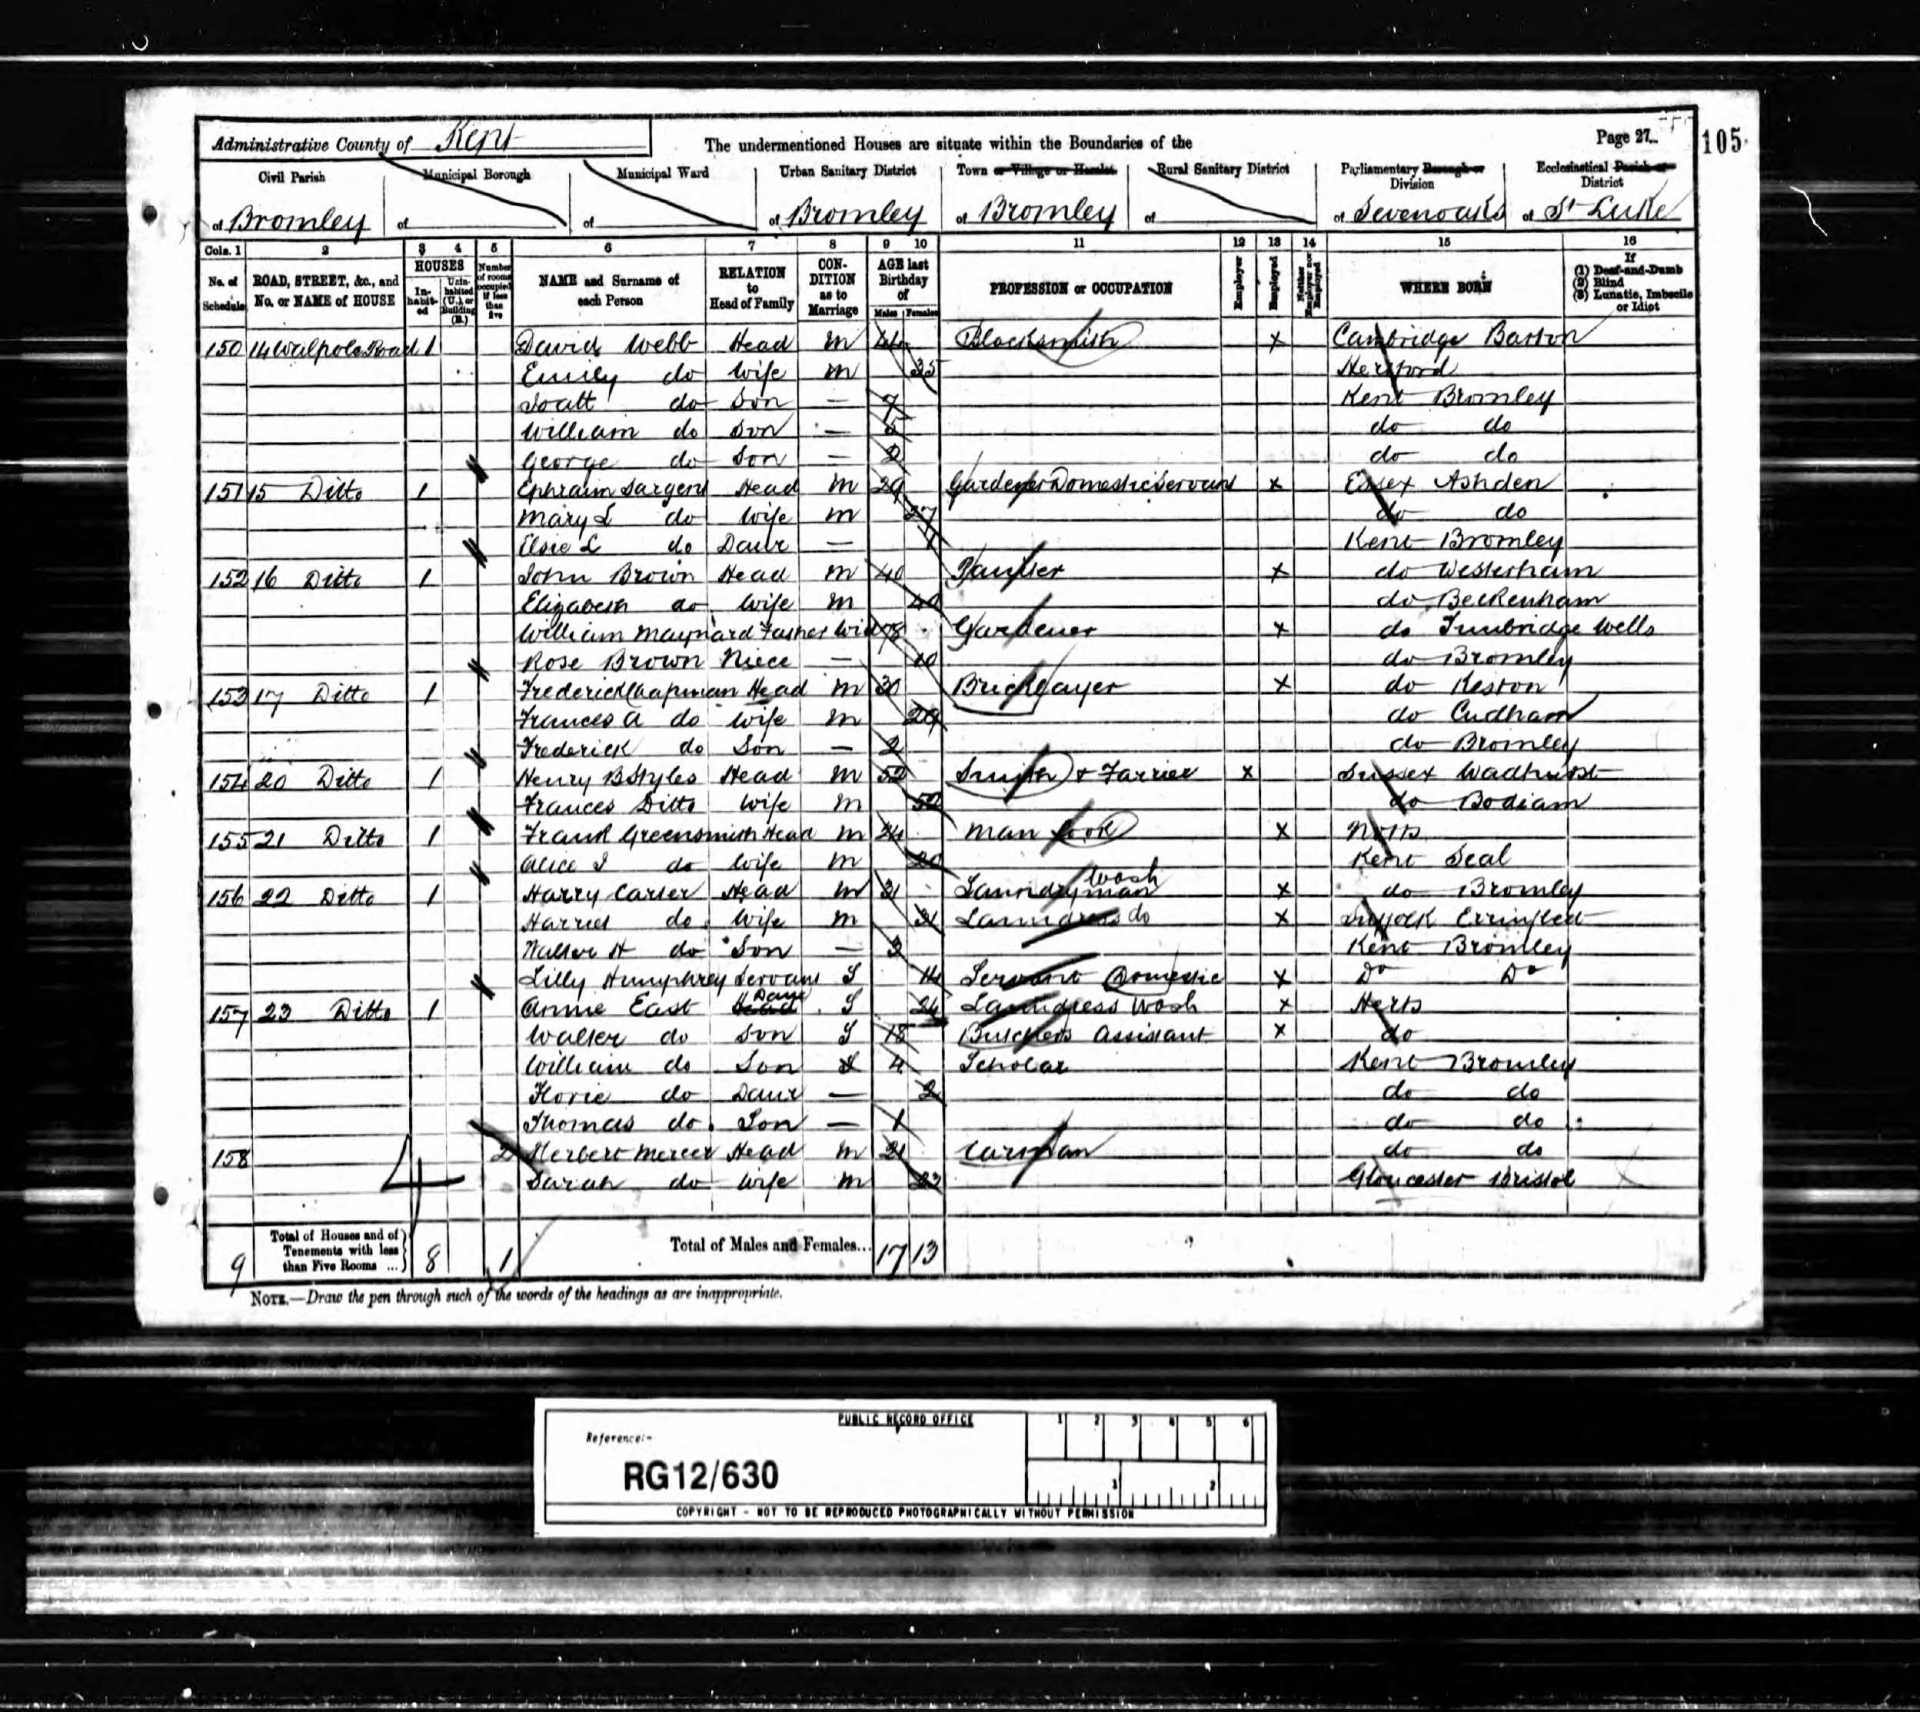 Administrative County of Kent
The undermentioned Houses are situate within the Boundaries of the
Page 27
105
Civil Parish
of Bromley
Municipal Borough
of
Municipal Ward
of
Urban Sanitary District
of Bromley
Town or Village or Hamlet
of Bromley
Rural Sanitary District
of
Parliamentary Borough or Division
of Sevenoaks
Ecclesiastical Parish or District
of St Luke
Cols. 1 2 3 4 5 6 7 8 9 10 11 12 13 14 15 16
No. of Schedule
ROAD, STREET, &c., and No. or NAME of HOUSE
HOUSES
In-habit-ed
Unin-habited (U.), or Building (B.)
Number of rooms occupied if less than five
NAME and Surname of each Person
RELATION to Head of Family
CON-DITION as to Marriage
AGE last Birthday of
Males Females
PROFESSION or OCCUPATION
Employer
Employed
Neither Employer nor Employed
WHERE BORN
If
(1) Deaf-and-Dumb
(2) Blind
(3) Lunatic, Imbecile or Idiot
150 14 Walpole Road 1 David Webb Head M 44 Blacksmith x Cambridge Barton
Emily do Wife M 35 Hertford
do Son — 7 Kent Bromley
William do Son — do do
George do Son — 2 do do
151 15 Ditto 1 Ephraim Sargent Head M 29 Gardener Domestic Servant x Essex Ashden
Mary L do Wife M 27 do do
Elsie L do Daur — Kent Bromley
152 16 Ditto 1 John Brown Head M 40 Painter x do Westerham
Elizabeth do Wife M 40 do Beckenham
William Maynard Father Wid 78 Gardener x do Tunbridge Wells
Rose Brown Niece — 10 do Bromley
153 17 Ditto 1 Frederick Chapman Head M 30 Bricklayer x do Keston
Frances A do Wife M 29 do Cudham
Frederick do Son — 2 do Bromley
154 20 Ditto 1 Henry B Styles Head M 52 Smith & Farrier x Sussex Wadhurst
Frances Ditto Wife M 52 do Bodiam
155 21 Ditto 1 Frank Greensmith Head M 24 Man Cook x Notts
Alice J do Wife M 20 Kent Seal
156 22 Ditto 1 Harry Carter Head M 31 Laundryman Wash x do Bromley
Harriet do Wife M 31 Laundress do x Suffolk
Walter H do Son — 3 Kent Bromley
Lilly Humphrey Servant S 14 Servant Domestic x Do Do
157 23 Ditto 1 Annie East Head Daur S 24 Laundress Wash x Herts
Walter do Son S 18 Butchers Assistant x do
William do Son 4 Scholar Kent Bromley
Florie do Daur — 2 do do
Thomas do Son — 1 do do
158 2 Herbert Mercer Head M 21 Carman do do
Sarah do Wife M 23 Gloucester Bristol
4
9 Total of Houses and of Tenements with less than Five Rooms ... 8 1 Total of Males and Females... 17 13
NOTE.—Draw the pen through such of the words of the headings as are inappropriate.
PUBLIC RECORD OFFICE
Reference:-
RG12/630
1 2 3 4 5 6
1 2
COPYRIGHT - NOT TO BE REPRODUCED PHOTOGRAPHICALLY WITHOUT PERMISSION